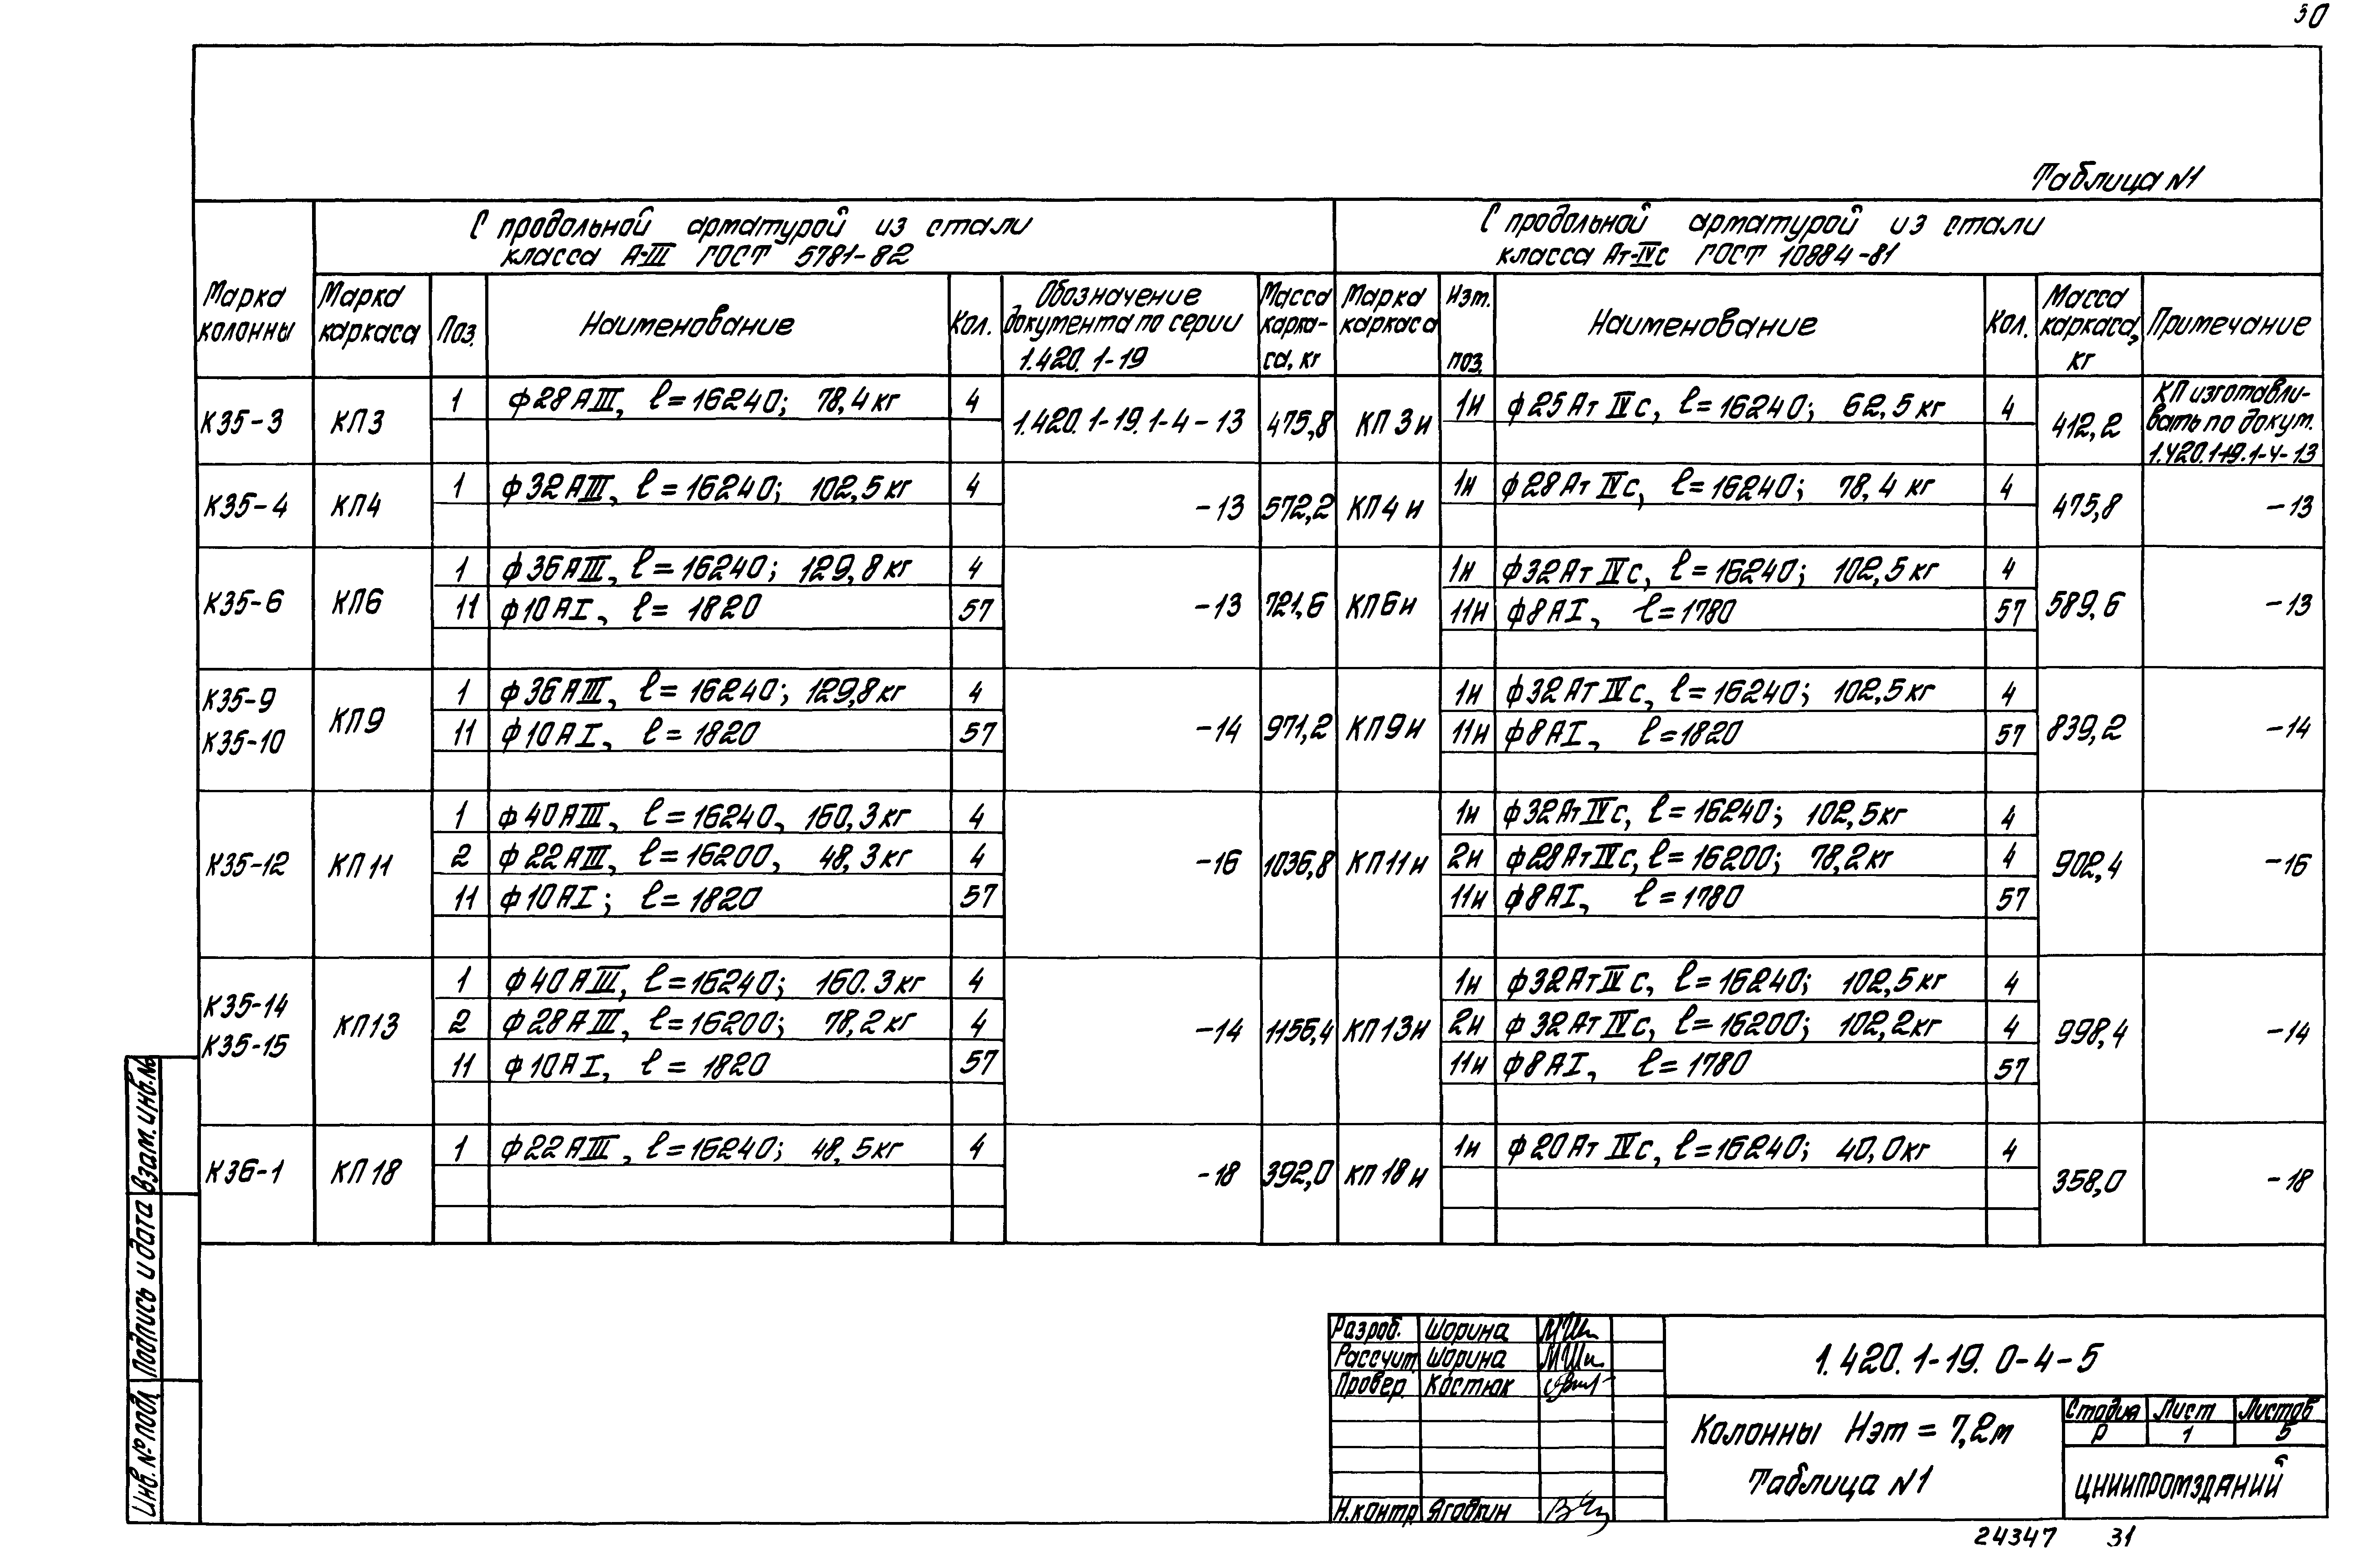 30
Таблица N1
С продольной арматурой из стали
класса А-III ГОСТ 5781-82
С продольной арматурой из стали
класса Ат-IVс ГОСТ 10884-81
Марка колонны
Марка каркаса
Поз.
Наименование
Кол.
Обозначение документа по серии 1.420.1-19
Масса карка-са, кг
Марка каркаса
Изт. поз.
Наименование
Кол.
Масса каркаса, кг
Примечание
К35-3 КП3 1 ф28АIII, ℓ=16240; 78,4кг 4 1.420.1-19.1-4-13 475,8 КП3и 1и ф25Ат IVс, ℓ=16240; 62,5кг 4 412,2 КП изготавли-
вать по докум.
1.420.1-19.1-4-13
К35-4 КП4 1 ф32АIII, ℓ=16240; 102,5кг 4 -13 572,2 КП4и 1и ф28Ат IVс, ℓ=16240; 78,4 кг 4 475,8 -13
К35-6 КП6 1 ф36АIII, ℓ=16240; 129,8кг 4 -13 721,6 КП6и 1и ф32Ат IVс, ℓ=16240; 102,5кг 4 589,6 -13
11 ф10АI, ℓ= 1820 57 11и ф8АI, ℓ=1780 57
К35-9
К35-10
КП9 1 ф36АIII, ℓ=16240; 129,8кг 4 -14 971,2 КП9и 1и ф32Ат IVс, ℓ=16240; 102,5кг 4 839,2 -14
11 ф10АI, ℓ= 1820 57 11и ф8АI, ℓ=1820 57
К35-12 КП11 1 ф40АIII, ℓ=16240, 160,3кг 4 -16 1036,8 КП11и 1и ф32Ат IVс, ℓ=16240; 102,5кг 4 902,4 -16
2 ф22АIII, ℓ=16200, 48,3кг 4 2и ф28Ат IVс, ℓ=16200; 78,2кг 4
11 ф10АI; ℓ=1820 57 11и ф8АI, ℓ=1780 57
К35-14
К35-15
КП13 1 ф40АIII, ℓ=16240; 160.3кг 4 -14 1156,4 КП13и 1и ф32Ат IVс, ℓ=16240; 102,5кг 4 998,4 -14
2 ф28АIII, ℓ=16200; 78,2кг 4 2и ф32Ат IVс, ℓ=16200; 102,2кг 4
11 ф10АI, ℓ= 1820 57 11и ф8АI, ℓ=1780 57
К36-1 КП18 1 ф22АIII, ℓ=16240; 48,5кг 4 -18 392,0 КП18и 1и ф20Ат IVс, ℓ=16240; 40,0кг 4 358,0 -18
Взам. инв. №
Подпись и дата
Инв. № подл.
Разраб. Шорина
Рассчит. Шорина
Провер. Костюк
Н.контр. Ягодкин
1.420.1-19.0-4-5
Колонны Нэт = 7,2м
Таблица N1
Стадия Лист Листов
Р 1 5
ЦНИИПРОМЗДАНИЙ
24347 31